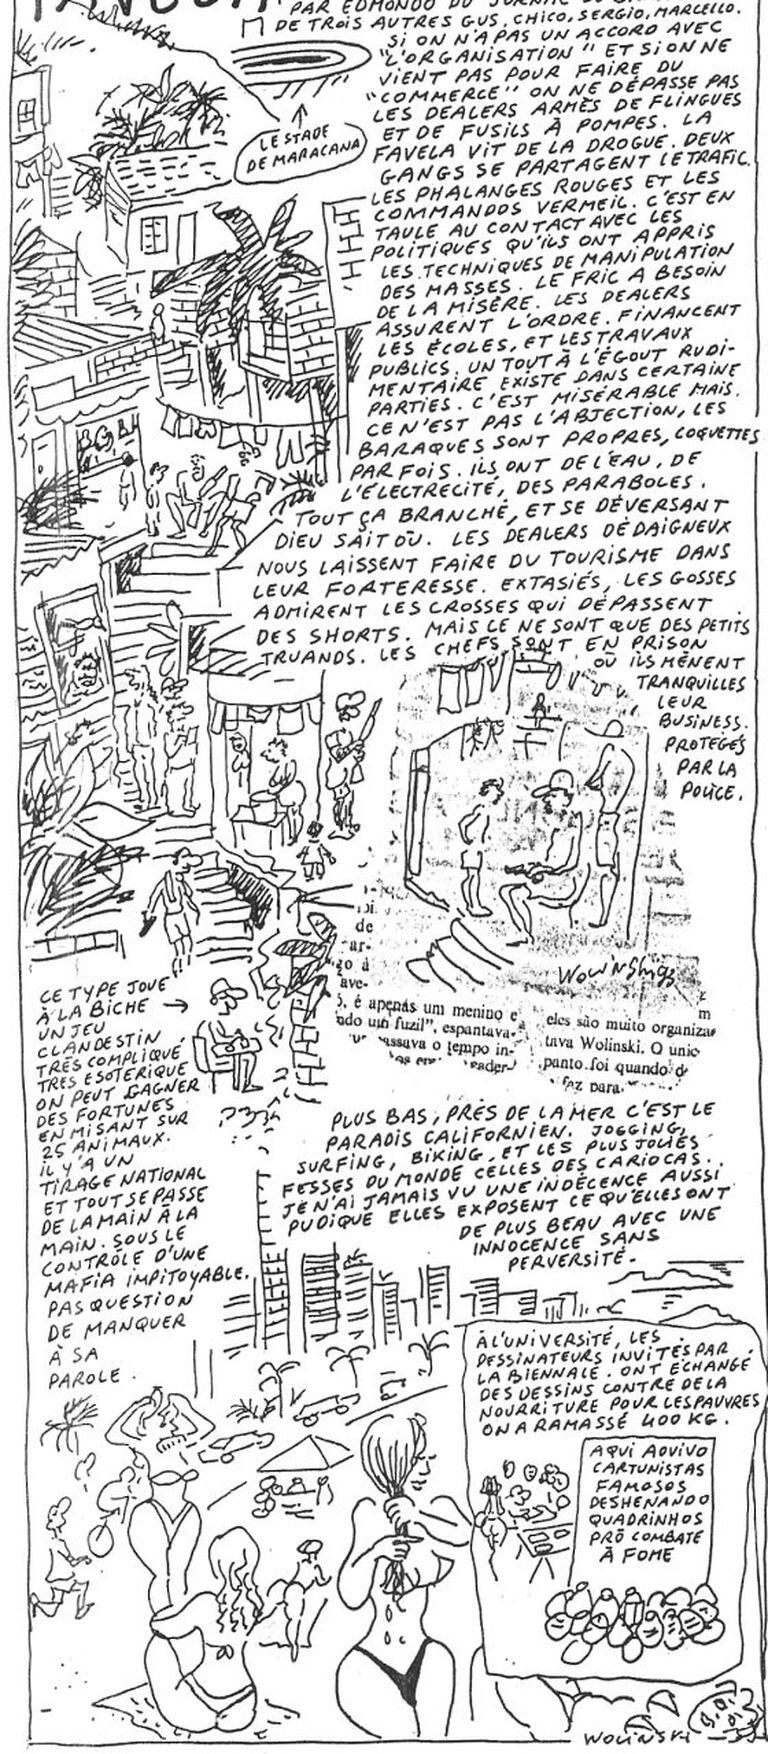 PAR EDMONDO DU JORNAL DO
DE TROIS AUTRES GUS, CHICO, SERGIO, MARCELLO.
SI ON N'A PAS UN ACCORD AVEC
"L'ORGANISATION" ET SI ON NE
VIENT PAS POUR FAIRE DU
"COMMERCE" ON NE DÉPASSE PAS
LES DEALERS ARMÉS DE FLINGUES
ET DE FUSILS À POMPES. LA
FAVELA VIT DE LA DROGUE. DEUX
GANGS SE PARTAGENT LE TRAFIC.
LES PHALANGES ROUGES ET LES
COMMANDOS VERMEIL. C'EST EN
TAULE AU CONTACT AVEC LES
POLITIQUES QU'ILS ONT APPRIS
LES TECHNIQUES DE MANIPULATION
DES MASSES. LE FRIC A BESOIN
DE LA MISÈRE. LES DEALERS
ASSURENT L'ORDRE. FINANCENT
LES ÉCOLES, ET LES TRAVAUX
PUBLICS. UN TOUT À L'ÉGOUT RUDI-
MENTAIRE EXISTE DANS CERTAINE
PARTIES. C'EST MISÉRABLE MAIS.
CE N'EST PAS L'ABJECTION, LES
BARAQUES SONT PROPRES, COQUETTES
PARFOIS. ILS ONT DE L'EAU, DE
L'ÉLECTRECITÉ, DES PARABOLES.
TOUT ÇA BRANCHÉ, ET SE DÉVERSANT
DIEU SAIT OÙ. LES DEALERS DÉDAIGNEUX
NOUS LAISSENT FAIRE DU TOURISME DANS
LEUR FORTERESSE. EXTASIÉS, LES GOSSES
ADMIRENT LES CROSSES QUI DÉPASSENT
DES SHORTS. MAIS CE NE SONT QUE DES PETITS
TRUANDS. LES CHEFS SONT EN PRISON
OÙ ILS MÈNENT
TRANQUILLES
LEUR
BUSINESS.
PROTÉGÉS
PAR LA
POLICE.
LE STADE
DE MARACANA
WOLINSKI 93
de
ar-
ave-
é apenás um menino e
ndo um fuzil", espantava-
assava o tempo in-
eles são muito organiza
tava Wolinski. O unic
panto foi quando d
faz para
CE TYPE JOUE
À LA BICHE →
UN JEU
CLANDESTIN
TRÈS COMPLIQUÉ
TRES ESOTÉRIQUE
ON PEUT GAGNER
DES FORTUNES
EN MISANT SUR
25 ANIMAUX.
IL Y'A UN
TIRAGE NATIONAL
ET TOUT SE PASSE
DE LA MAIN À LA
MAIN. SOUS LE
CONTRÔLE D'UNE
MAFIA IMPITOYABLE.
PAS QUESTION
DE MANQUER
À SA
PAROLE.
PLUS BAS, PRÈS DE LA MER C'EST LE
PARADIS CALIFORNIEN. JOGGING,
SURFING, BIKING, ET LES PLUS JOLIES
FESSES DU MONDE CELLES DES CARIOCAS.
JE N'AI JAMAIS VU UNE INDÉCENCE AUSSI
PUDIQUE ELLES EXPOSENT CE QU'ELLES ONT
DE PLUS BEAU AVEC UNE
INNOCENCE SANS
PERVERSITÉ.
À L'UNIVERSITÉ, LES
DESSINATEURS INVITÉS PAR
LA BIENNALE. ONT ÉCHANGÉ
DES DESSINS CONTRE DE LA
NOURRITURE POUR LES PAUVRES
ON A RAMASSÉ 400 KG.
AQUI AOVIVO
CARTUNISTAS
FAMOSOS
DESHENANDO
QUADRINHOS
PRÓ COMBATE
À FOME
WOLINSKI